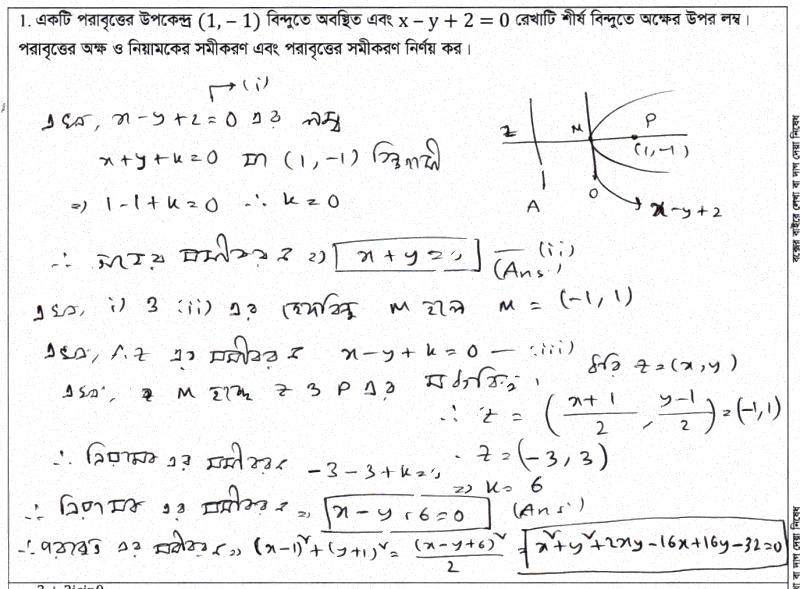 1. একটি পরাবৃত্তের উপকেন্দ্র (1, – 1) বিন্দুতে অবস্থিত এবং x – y + 2 = 0 রেখাটি শীর্ষ বিন্দুতে অক্ষের উপর লম্ব।
পরাবৃত্তের অক্ষ ও নিয়ামকের সমীকরণ এবং পরাবৃত্তের সমীকরণ নির্ণয় কর।
(i)
এখন, x-y+2=0 এর লম্ব
x+y+k=0 যা (1,-1) বিন্দুগামী
=> 1-1+k=0 ∴ k=0
Z M P
(1,-1)
A O x-y+2
∴ অক্ষের সমীকরণ => x+y=0 — (ii)
(Ans:)
এখন, i) ও (ii) এর ছেদবিন্দু M হলে M = (-1, 1)
এখন, এর সমীকরণ x-y+k=0 — (iii)
ধরি Z=(x,y)
এখন, M হচ্ছে Z ও P এর মধ্যবিন্দু,
∴ Z = (x+1/2, y-1/2) = (-1,1)
∴ Z=(-3,3)
∴ নিয়ামক এর সমীকরণ -3-3+k=0
=> k=6
∴ নিয়ামক এর সমীকরণ => x-y+6=0 (Ans:)
∴ পরাবৃত্ত এর সমীকরণ => (x-1)²+(y+1)² = (x-y+6)²/2 = x²+y²+2xy-16x+16y-32=0
বক্সের বাইরে লেখা বা দাগ দেয়া নিষেধ